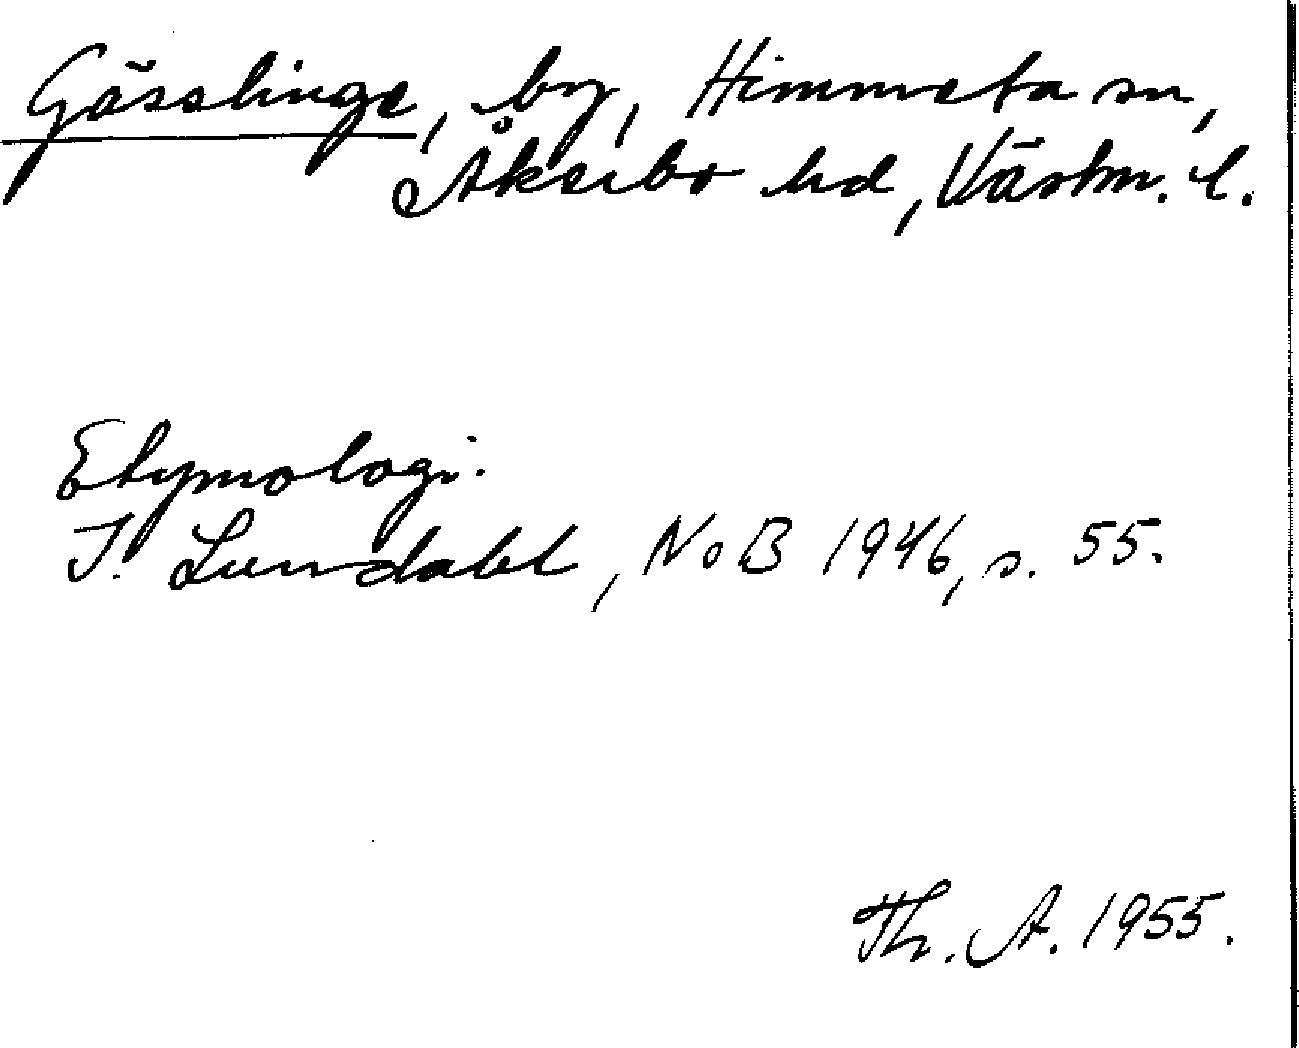 Gässlinge, by, Himmeta sn,
Åkerbo hd, Västm. l.
Etymologi.
I. Lundahl, NoB 1946, s. 55.
Th. A. 1955.